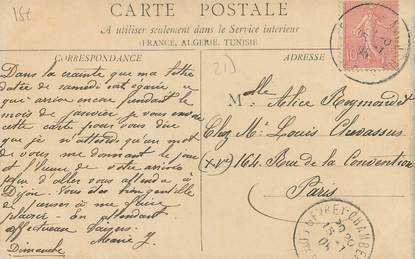 15t
CARTE POSTALE
A utiliser seulement dans le Service intérieur
(FRANCE, ALGÉRIE, TUNISIE)
CORRESPONDANCE
ADRESSE
21)
Dans la crainte que ma lettre
datée de samedi soit égarée
que arrive encore pendant le
mois de janvier je vous envoie
cette carte pour vous dire
que je n'attends qu'un mot
de vous me donnant le jour
et l'heure de votre arrivée
afin d'aller vous attendre à
Dijon. Vous êtes bien gentille
de penser à me faire
plaisir - En attendant
affectueux baisers.
Marie J.
Dimanche
Melle Alice Reymond
Chez Mr Louis Chavassus
(XVe) 164 Rue de la Convention
Paris
GEVREY-CHAMBERTIN